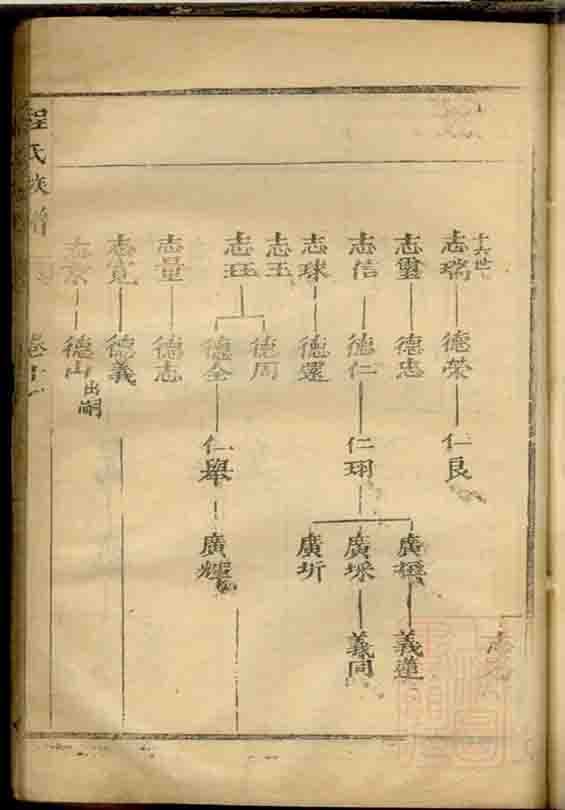 十六世
志瑞
德榮
仁良
志璽
德忠
志信
德仁
仁珝
廣
義蓮
廣埰
義同
廣圻
志球
德還
志玉
志珏
德周
德全
仁舉
廣輝
志量
德志
志寬
德義
志
德山
出嗣
程氏族譜
卷十一
志